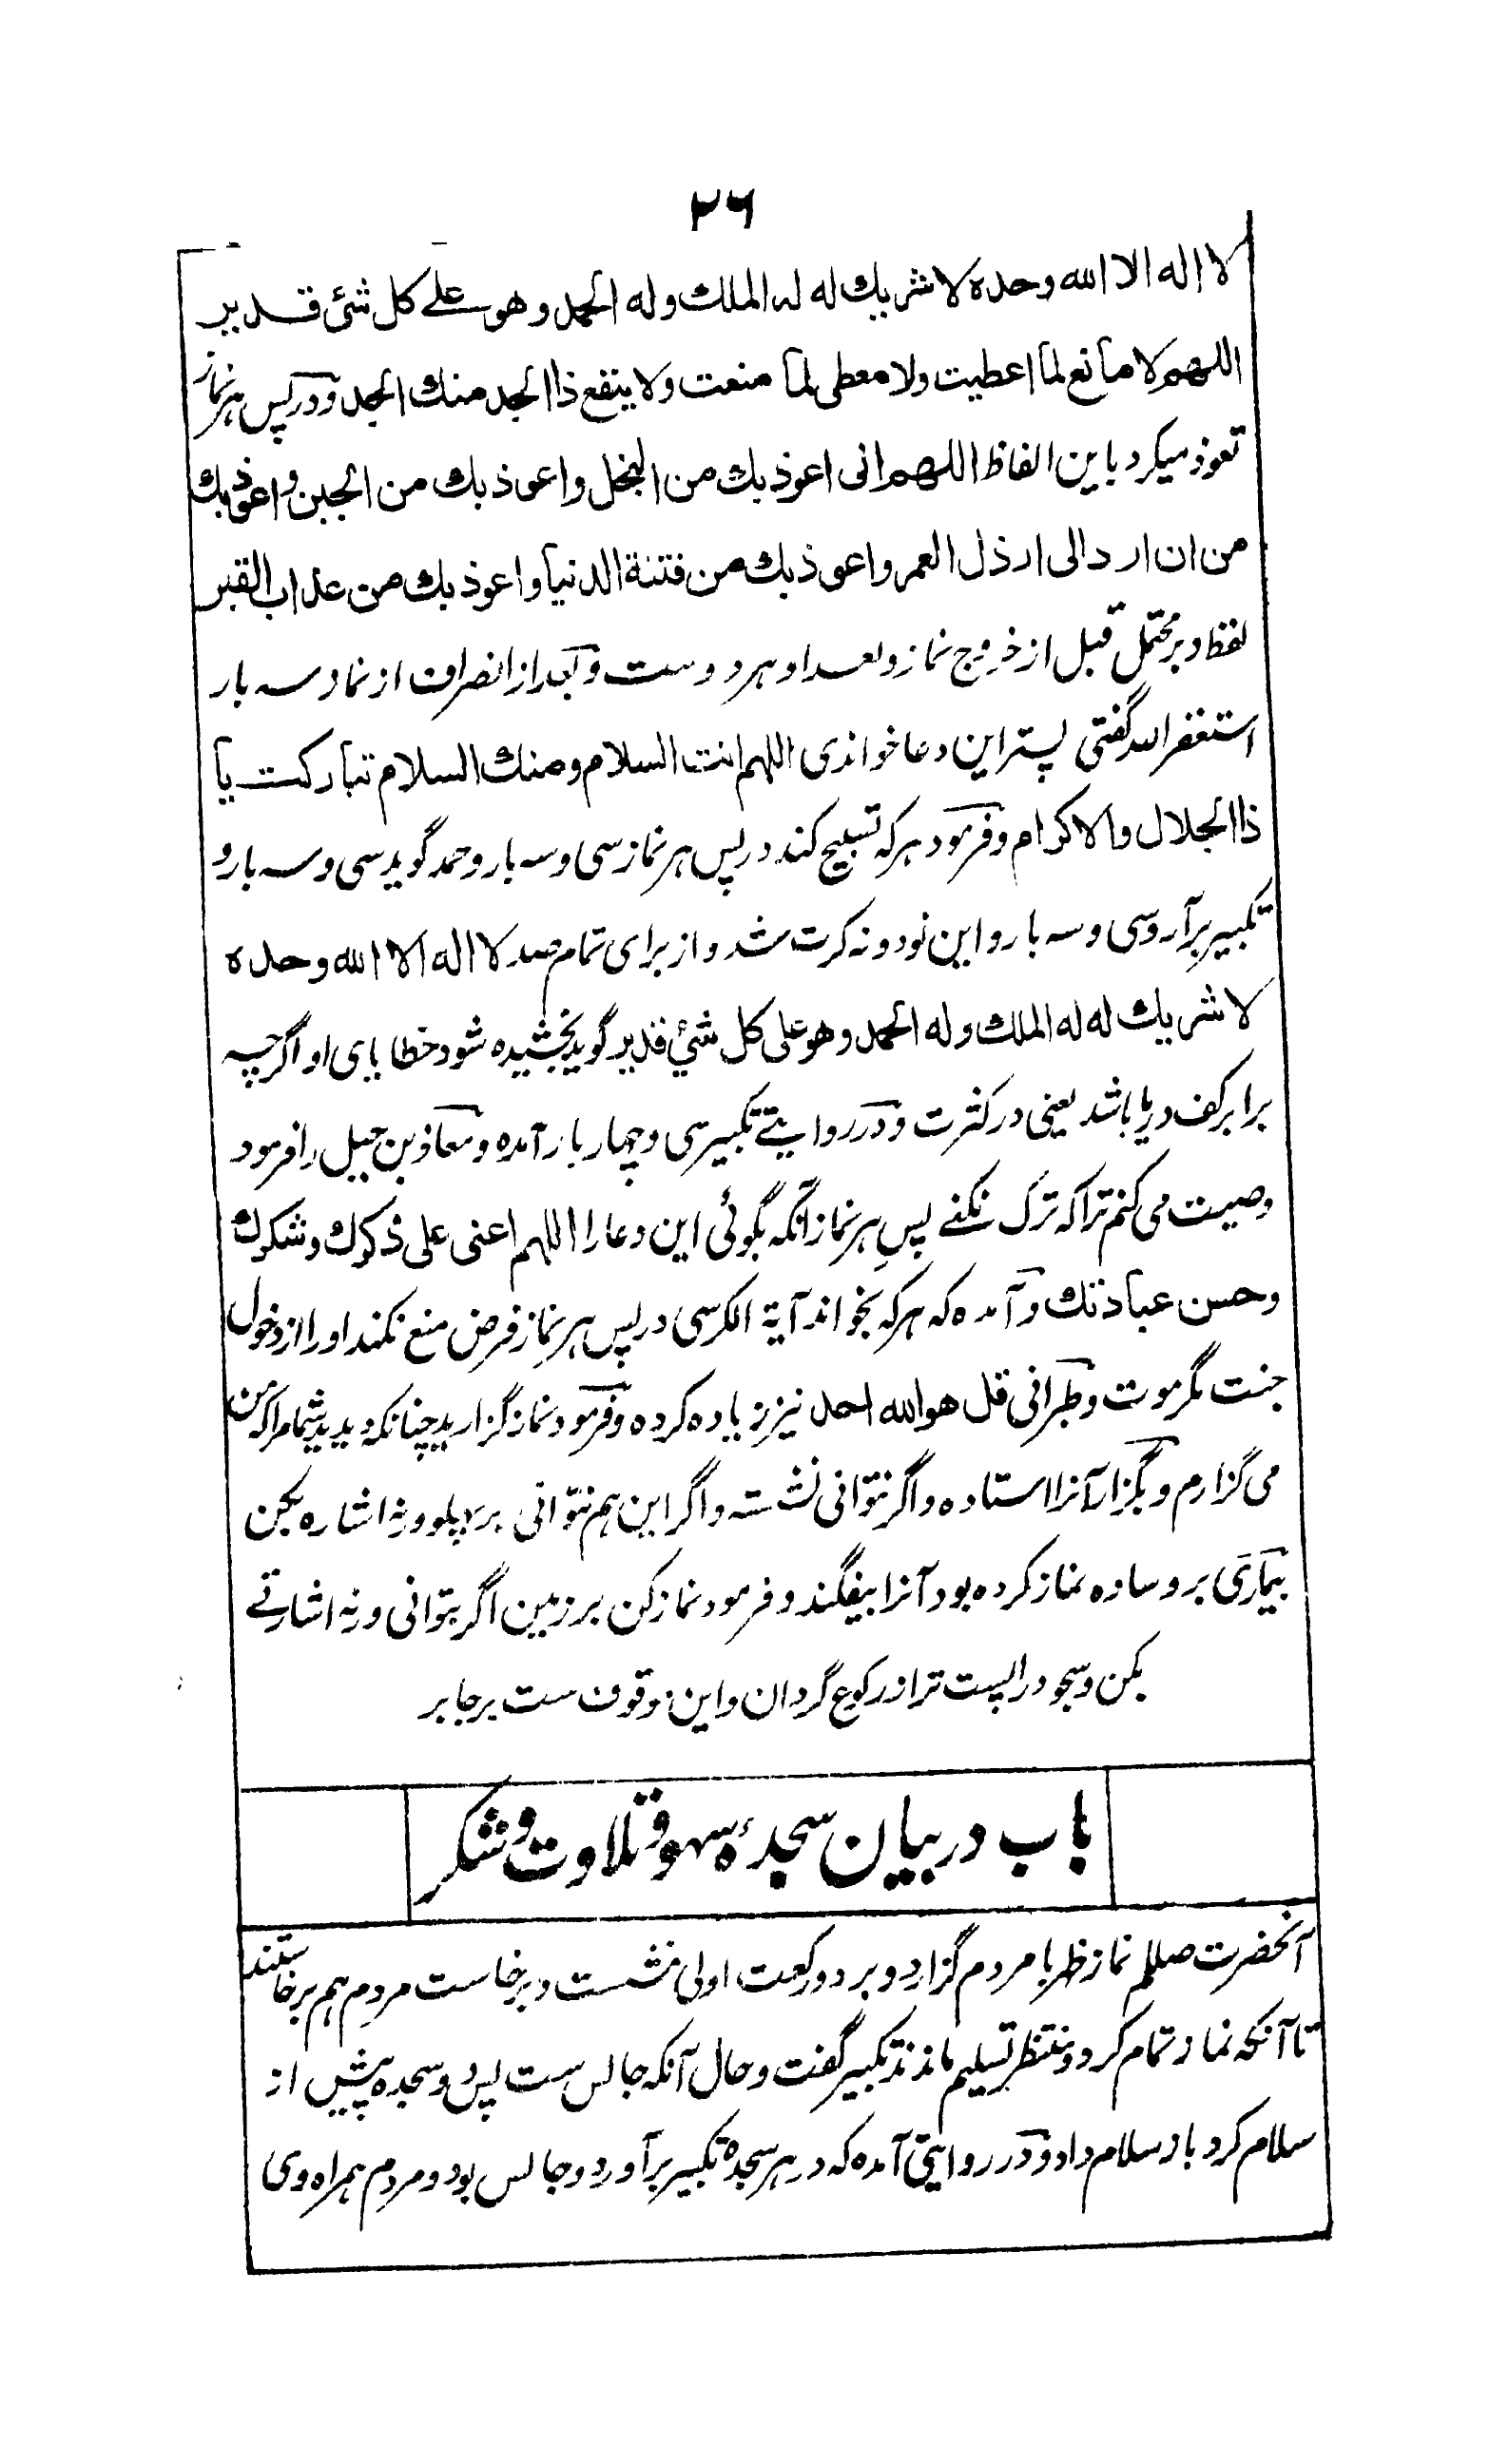 ۲۶
لا اله الا الله وحده لا شريك له له الملك وله الحمد وهو على كل شئ قدير
اللهم لا مانع لما اعطيت ولا معطى لما منعت ولا ينفع ذا الجد منك الجد و در پس هر نماز
تعوذ میکرد باین الفاظ اللهم انى اعوذ بك من البخل واعوذ بك من الجبن واعوذ بك
من ان ارد الى ارذل العمر واعوذ بك من فتنة الدنيا واعوذ بك من عذاب القبر
لفظ دبر محتمل قبل از خروج نماز و بعد او هر دو ست و بعد از انصراف از نماز سه بار
استغفر الله گفتی پستر این دعا خواندی اللهم انت السلام ومنك السلام تباركت يا
ذا الجلال والاكرام و فرمود هر که تسبیح کند در پس هر نماز سی و سه بار و حمد گوید سی و سه بار و
تکبیر برآرد سی و سه بار و این نود و نه کرت شد و از برای تمام صد لا اله الا الله وحده
لا شريك له له الملك وله الحمد وهو على كل شيئ قدير گوید بخشیده شود خطایای او اگرچه
برابر کف دریا باشد یعنی در کثرت و در روایتے تکبیر سی و چهار بار آمده و معاذ بن جبل را فرمود
وصیت می کنم ترا که ترک نکنے پسِ هر نماز آنکه بگوئی این دعا را اللهم اعنى على ذكرك وشكرك
وحسن عبادتك و آمده که هر که بخواند آیة الکرسی در پس هر نماز فرض منع نکند او را از دخول
جنت مگر موت و طبرانی قل هو الله احد نیز زیاده کرده و فرمود نماز گزارید چنانکه دیدید شما مرا که من
می گزارم و بگزار آنرا استاده و اگر نتوانی نشسته و اگر این هم نتوانی بر پہلو ورنه اشاره بکن
بیماری بر وساده نماز کرده بود آنرا بیفگند و فرمود نماز کن بر زمین اگر بتوانی ورنه اشارتے
بکن و سجود را پست تر از رکوع گردان و این موقوف ست بر جابر
باب در بیان سجدۂ سهو و تلاوت و شکر
آنحضرت صللم نماز ظهر با مردم گزارد و بر دو رکعت اولی نشست و برخاست مردم هم برخاستند
تا آنکه نماز تمام کرد و منتظر تسلیم ماندند تکبیر گفت و حال آنکه جالس ست پس دو سجده پیش از
سلام کرد باز سلام داد و در روایتی آمده که در هر سجده تکبیر برآورد و جالس بود و مردم همراه وی